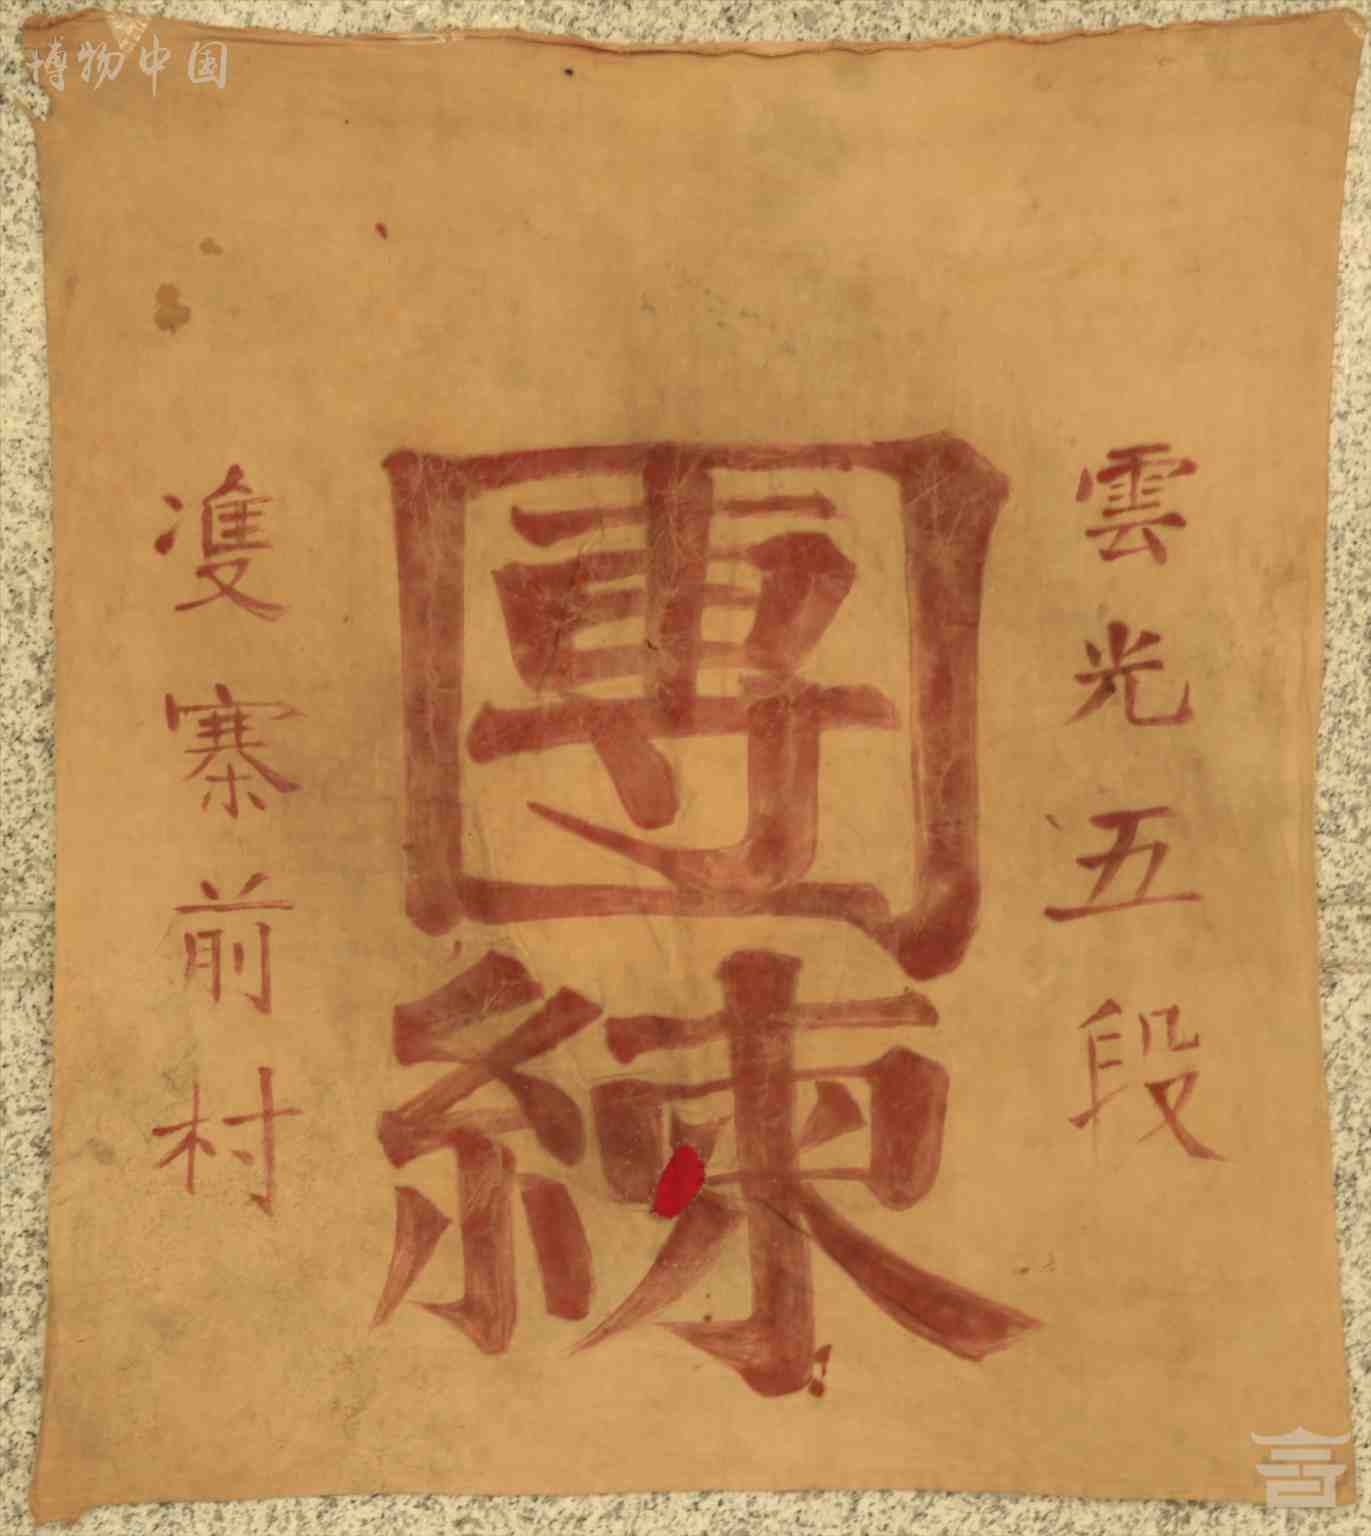 博物中国
雲光五段
團練
㕠寨前村